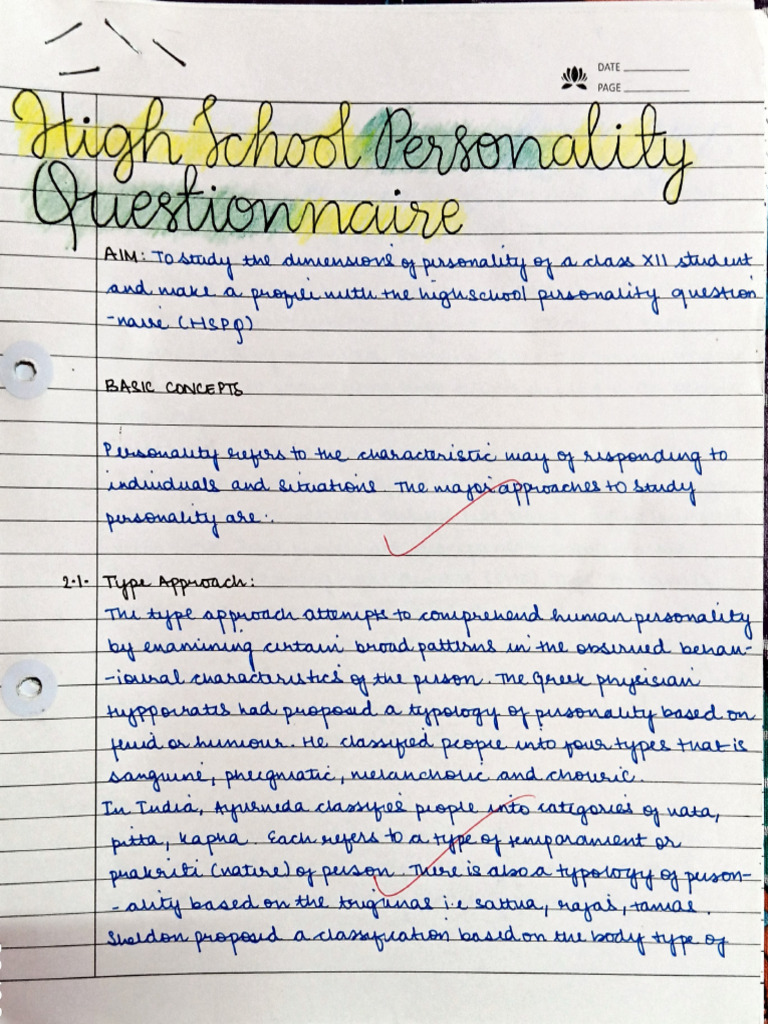 DATE
PAGE
High School Personality
Questionnaire
AIM: To study the dimensions of personality of a class XII student
and make a profile with the highschool personality question
-naire (HSPQ)
BASIC CONCEPTS
Personality refers to the characteristic way of responding to
individuals and situations. The major approaches to study
personality are:
2.1. Type Approach:
The type approach attempts to comprehend human personality
by examining certain broad patterns in the observed behav-
-ioural characteristics of the person. The Greek physician
Hyppocrates had proposed a typology of personality based on
fluid or humour. He classified people into four types that is
sanguine, phlegmatic, melancholic and choleric.
In India, Ayurveda classifies people into categories of vata,
pitta, kapha. Each refers to a type of temperament or
prakriti (nature) of person. There is also a typology of person-
-ality based on the trigunas i.e sattva, rajas, tamas.
Sheldon proposed a classification based on the body type of